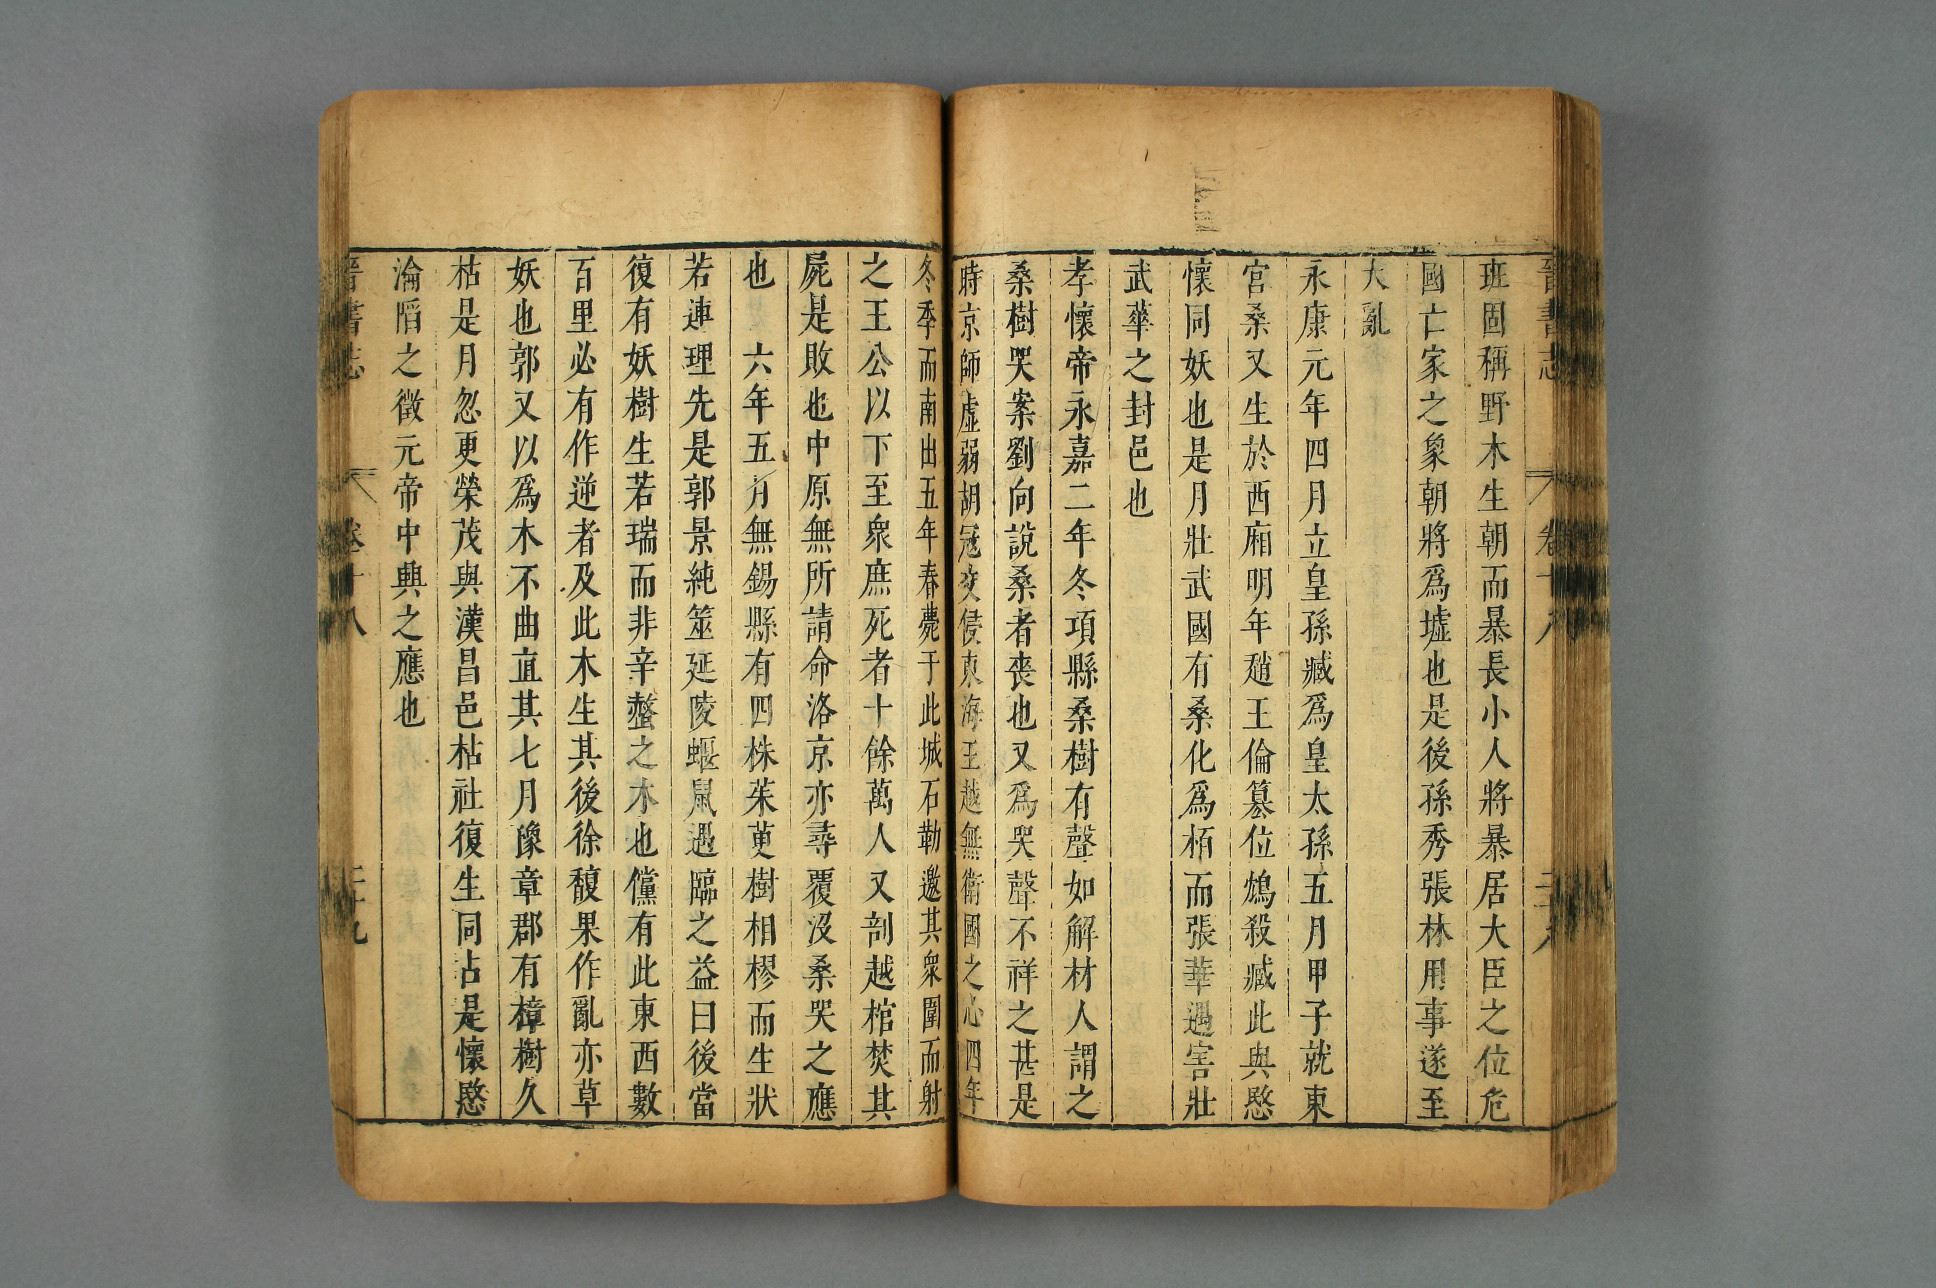 晉書志 卷十八 二十八
班固稱野木生朝而暴長小人將暴居大臣之位危
國亡家之象朝將爲墟也是後孫秀張林用事遂至
大亂
永康元年四月立皇孫臧爲皇太孫五月甲子就東
宮桑又生於西廂明年趙王倫篡位鴆殺臧此與愍
懷同妖也是月壯武國有桑化爲栢而張華遇害壯
武華之封邑也
孝懷帝永嘉二年冬項縣桑樹有聲如解材人謂之
桑樹哭案劉向說桑者喪也又爲哭聲不祥之甚是
時京師虛弱胡寇交侵東海王越無衛國之心四年
冬季而南出五年春薨于此城石勒邀其衆圍而射
之王公以下至衆庶死者十餘萬人又剖越棺焚其
屍是敗也中原無所請命洛京亦尋覆沒桑哭之應
也 六年五月無錫縣有四株茱萸樹相樛而生狀
若連理先是郭景純筮延陵蝘鼠遇臨之益曰後當
復有妖樹生若瑞而非辛螫之木也儻有此東西數
百里必有作逆者及此木生其後徐馥果作亂亦草
妖也郭又以爲木不曲直其七月豫章郡有樟樹久
枯是月忽更榮茂與漢昌邑枯社復生同占是懷愍
淪陷之徵元帝中興之應也
晉書志 卷十八 二十九